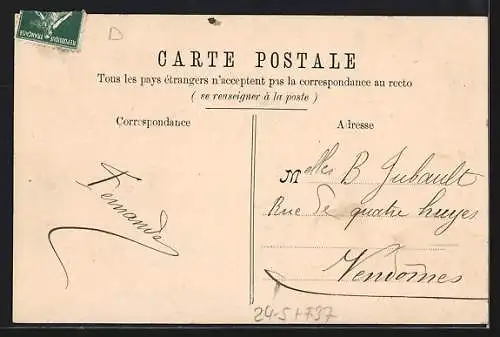 D
REPUBLIQUE FRANÇAISE
CARTE POSTALE
Tous les pays étrangers n'acceptent pas la correspondance au recto
( se renseigner à la poste )
Correspondance
Adresse
Fernande
Melles B Jubault
Rue de quatre huyes
Vendômes
24-5+737